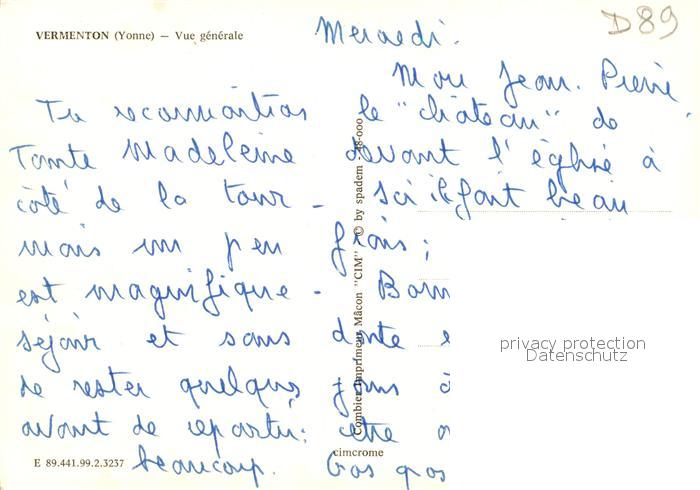 VERMENTON (Yonne) — Vue générale
D89
Mercredi.
Mon Jean. Pierre
Tu reconnaitras le "château" de
Tante Madeleine devant l'église à
côté de la tour - Ici il fait beau
mais un peu frais ;
est magnifique - Bon
séjour et sans doute
de rester quelques jours à
avant de repartir:
beaucoup. Gros gros
E 89.441.99.2.3237
cimcrome
Combier Imprimeur Mâcon "CIM" © by spadem - 48-000
privacy protection
Datenschutz